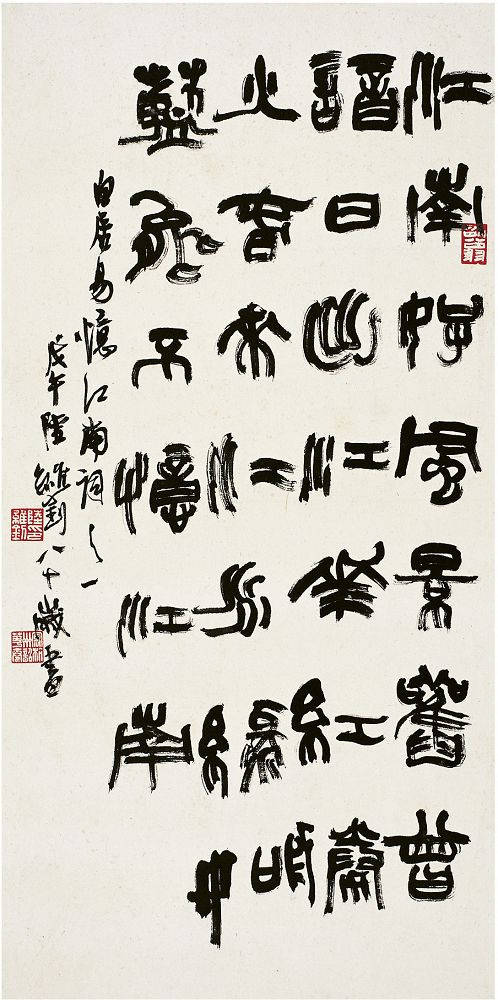 江南好風景舊曾
諳日出江花紅勝
火春來江水綠如
藍能不憶江南
白居易憶江南詞之一
戊午陸維釗八十歲書